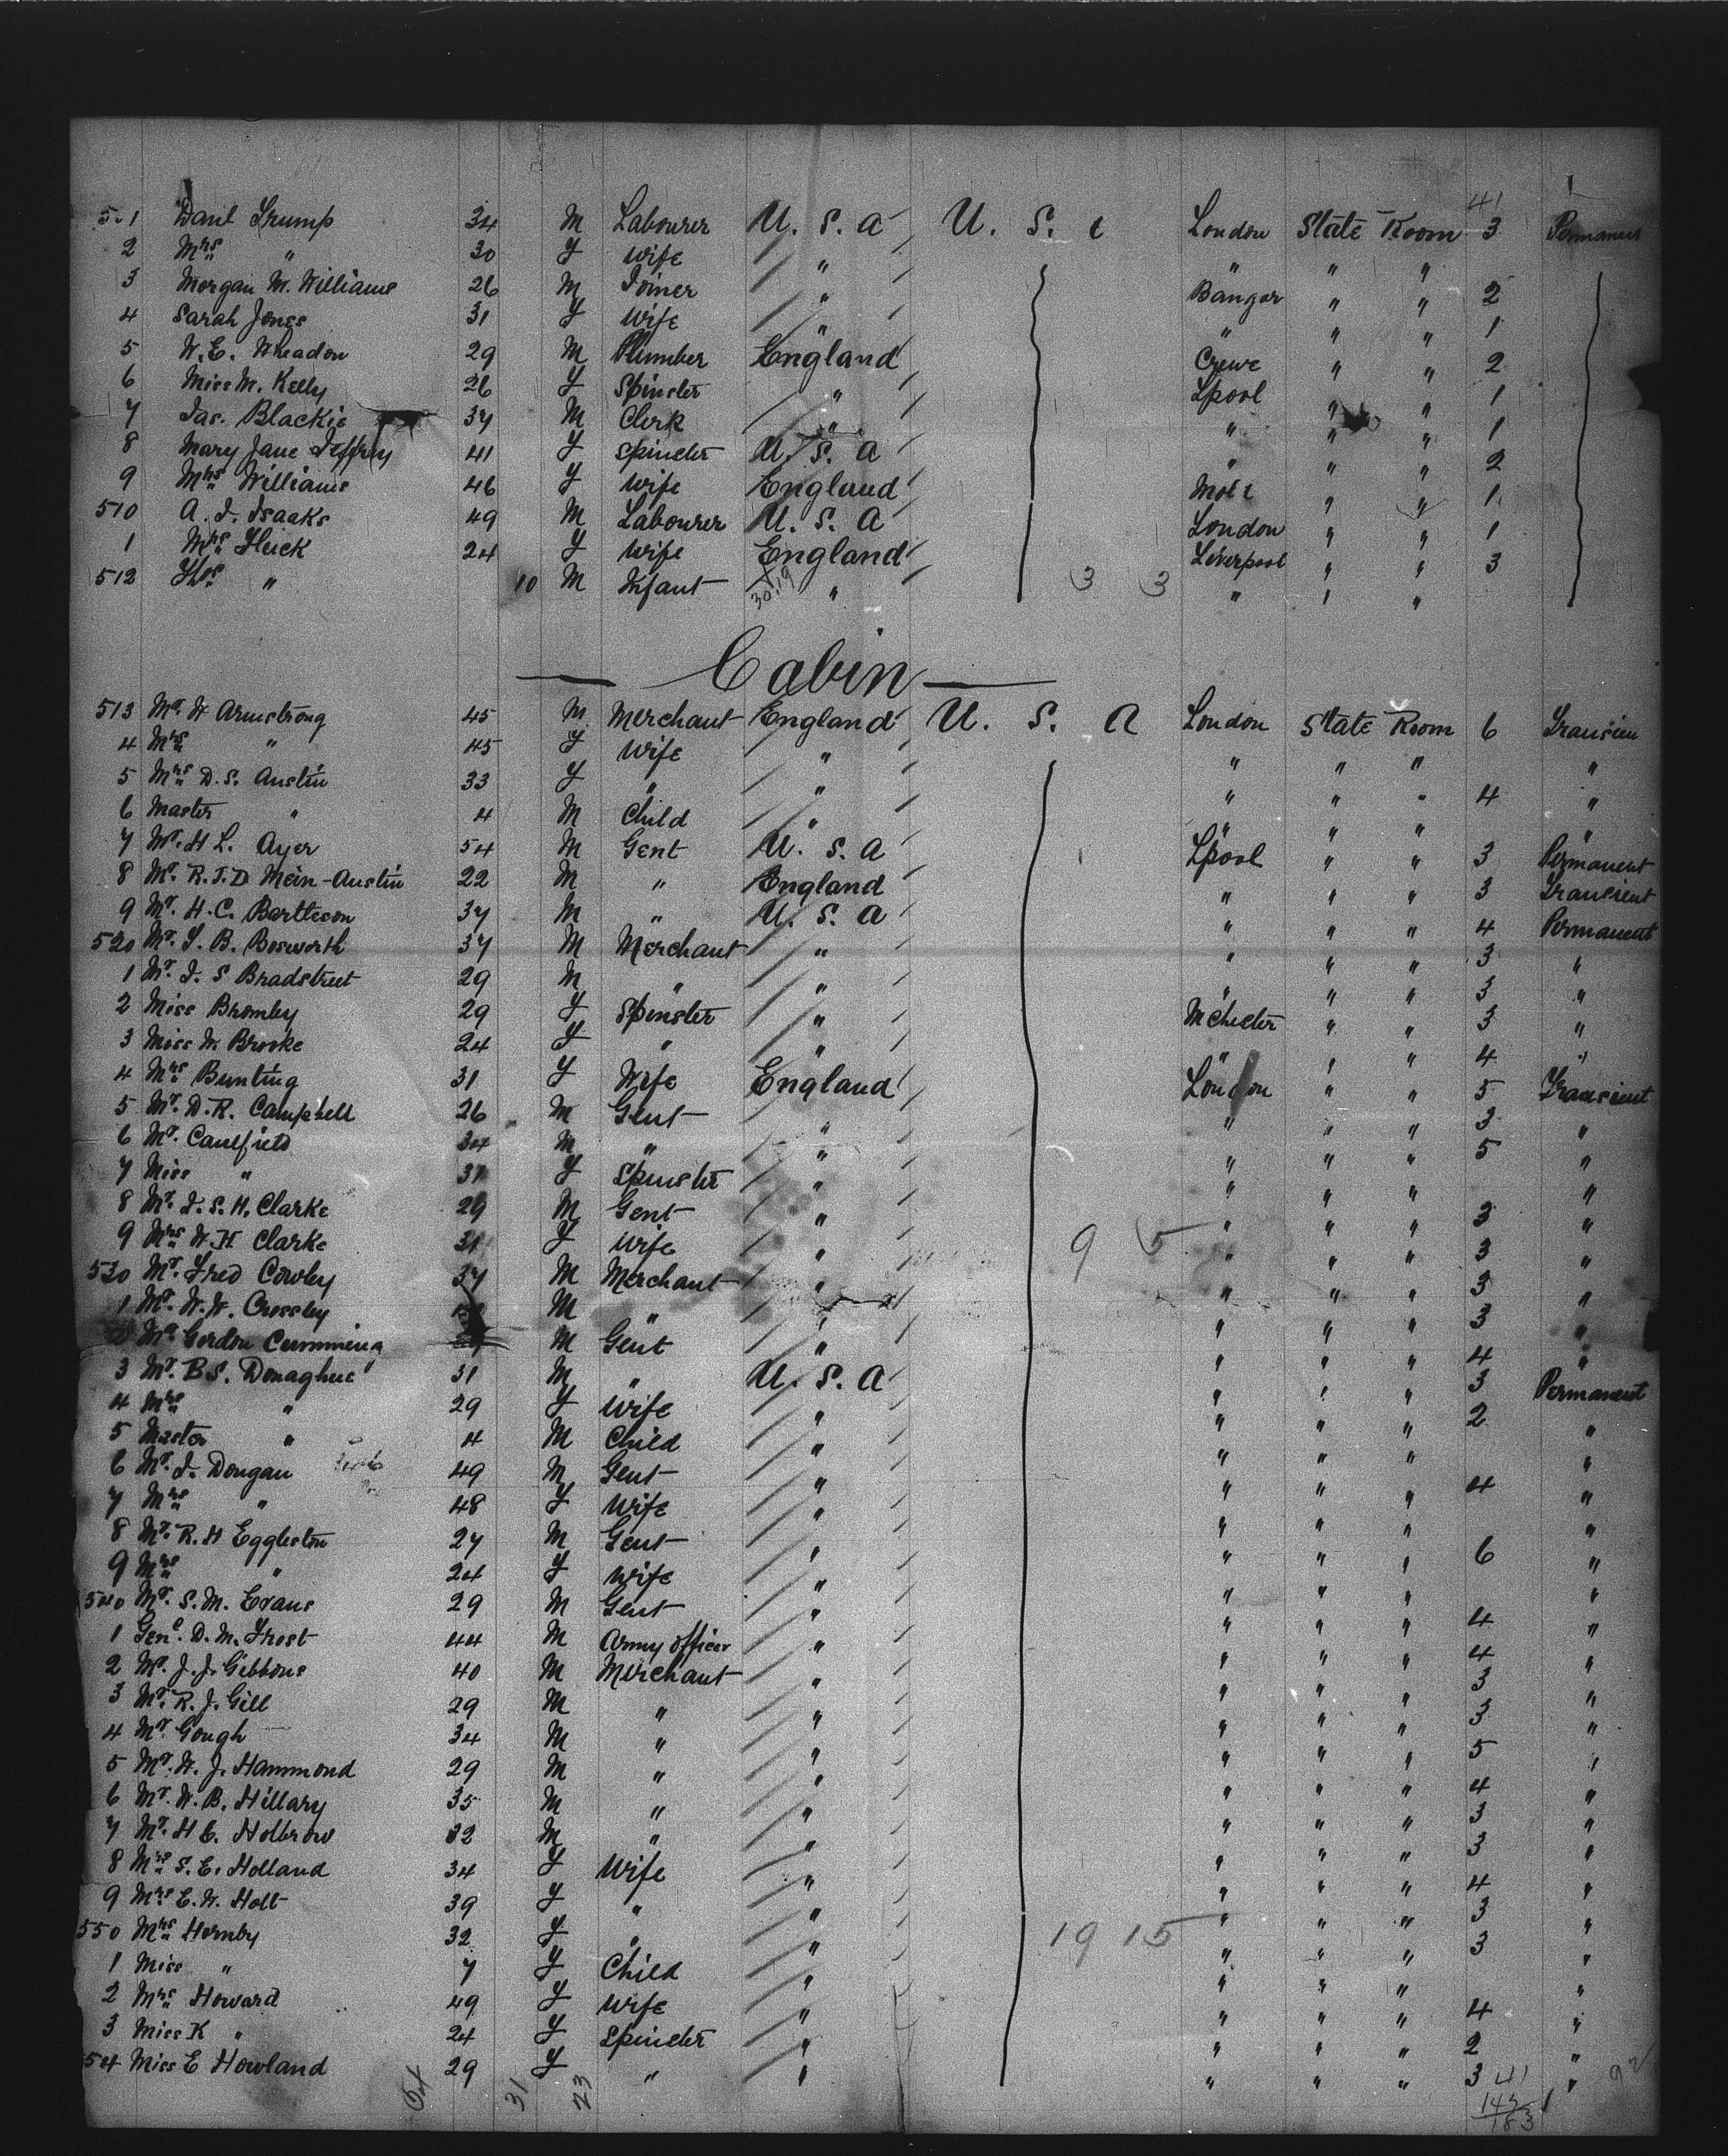 501 Danl Trump 34 M Labourer U. S. A U. S. London State Room 3 Permanent
2 Mrs " 30 F Wife " " " "
3 Morgan M. Williams 26 M Joiner " Bangor " " 2
4 Sarah Jones 31 F Wife " " " " 1
5 W. E. Wheadon 29 M Plumber England Crewe " " 2
6 Miss M. Kelly 26 F Spinster " Lpool " " 1
7 Jas. Blackie 37 M Clerk " " " " 1
8 Mary Jane Jeffrey 41 F Spinster U. S. A " " " 2
9 Mrs Williams 46 F Wife England " " 1
510 A. J. Isaaks 49 M Labourer U. S. A London " " 1
1 Mrs Heick 24 F Wife England Liverpool " " 3
512 " 10 M Infant " 3 3 " " "
Cabin
513 Mr. W Armstrong 45 M Merchant England U. S. A London State Room 6 Transien
4 Mrs " 45 F Wife " " " " "
5 Mrs D. S. Austin 33 F " " " " " 4 "
6 Master " 4 M Child " " " " "
7 Mr. H L. Ayer 54 M Gent U. S. A Lpool " " 3 Permanent
8 Mr. R. J. D. Mein-Austin 22 M " England " " " 3 Transient
9 Mr. H. C. Bartteson 37 M " U. S. A " " " 4 Permanent
520 Mr. F. B. Bosworth 37 M Merchant " " " " 3 "
1 Mr. J. S Bradstreet 29 M " " " " " 3 "
2 Miss Bromby 29 F Spinster " Mchester " " 3 "
3 Miss W. Brooke 24 F " " " " " 4 "
4 Mrs Bunting 31 F Wife England London " " 5 Transient
5 Mr. D. R. Campbell 26 M Gent " " " " 3 "
6 Mr. Caulfield 34 M " " " " " 5 "
7 Miss " 37 F Spinster " " " " "
8 Mr. J. S. H. Clarke 29 M Gent " " " " 3 "
9 Mrs W. H Clarke 31 F Wife " 9 5 " " " 3 "
530 Mr. Fred Cowley 37 M Merchant " " " " 3 "
1 Mr. W. W. Crossley M " " " " " 3 "
2 Mr Gordon Cumming M Gent " " " " 4 "
3 Mr. B S. Donaghue 31 M " U. S. A " " " 3 Permanent
4 Mrs " 29 F Wife " " " " 2 "
5 Master " 4 M Child " " " " "
6 Mr. J. Dougan 49 M Gent " " " " 4 "
7 Mrs " 48 F Wife " " " " "
8 Mr. R. H Eggleston 27 M Gent " " " " 6 "
9 Mrs " 24 F Wife " " " " "
540 Mr. S. M. Evans 29 M Gent " " " " 4 "
1 Genl. D. M. Frost 44 M Army Officer " " " " 4 "
2 Mr. J. J. Gibbons 40 M Merchant " " " " 3 "
3 Mr. R. J. Gill 29 M " " " " " 3 "
4 Mr. Gough 34 M " " " " " 5 "
5 Mr. W. J. Hammond 29 M " " " " " 4 "
6 Mr. W. B. Hillary 35 M " " " " " 3 "
7 Mr. H E. Holbrow 32 M " " " " " 3 "
8 Mrs S. E. Holland 34 F Wife " " " " 4 "
9 Mrs E. W. Holt 39 F " " " " " 3 "
550 Mrs Hornby 32 F " " 19 15 " " " 3 "
1 Miss " 7 F Child " " " " "
2 Mrs Howard 49 F Wife " " " " 4 "
3 Miss K " 24 F Spinster " " " " 2 "
54 Miss E Howland 29 F " " " " " 3 "
31 23 41
143
183